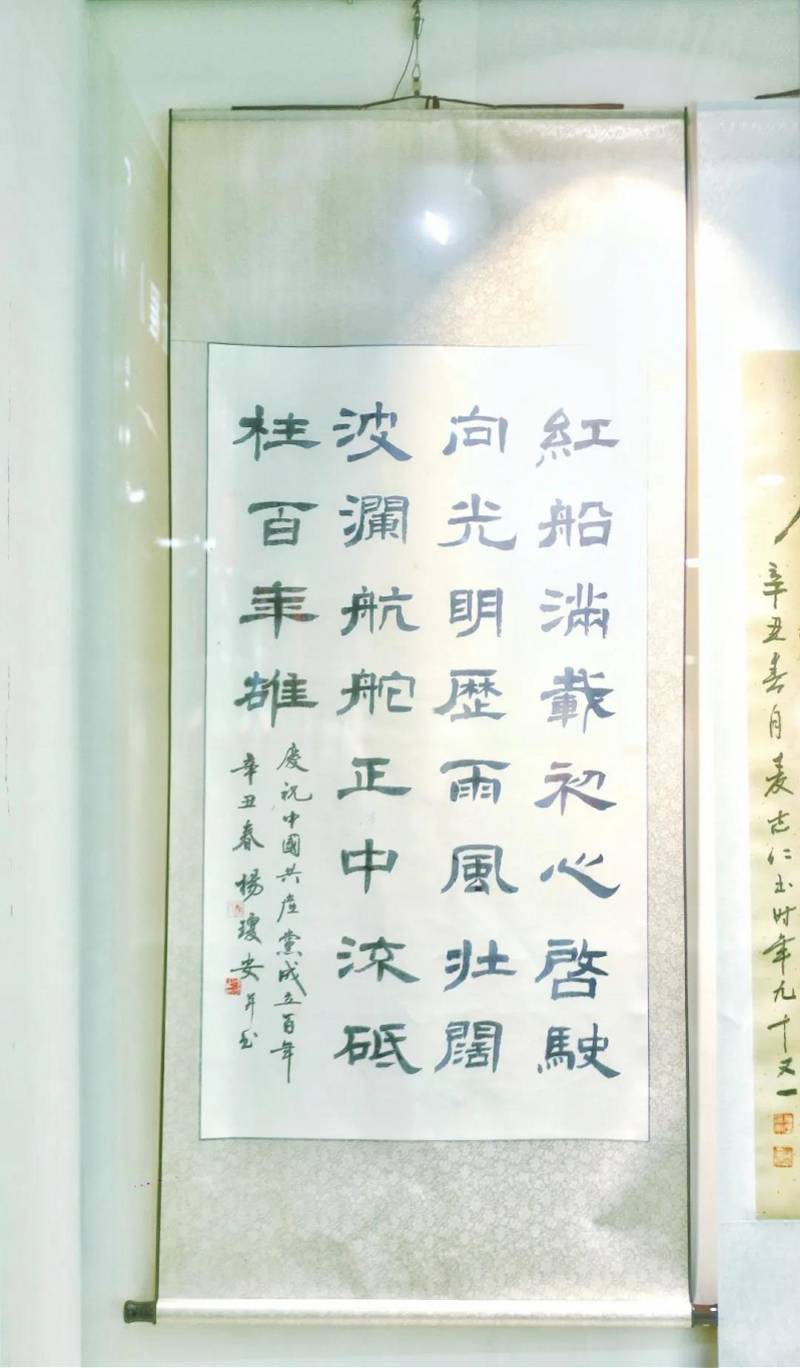 紅船滿載初心啓駛
向光明歷雨風壯闊
波瀾航舵正中流砥
柱百年雄
慶祝中國共產黨成立百年
辛丑春楊瓊安并書
辛丑春月麦志仁書时年九十又一